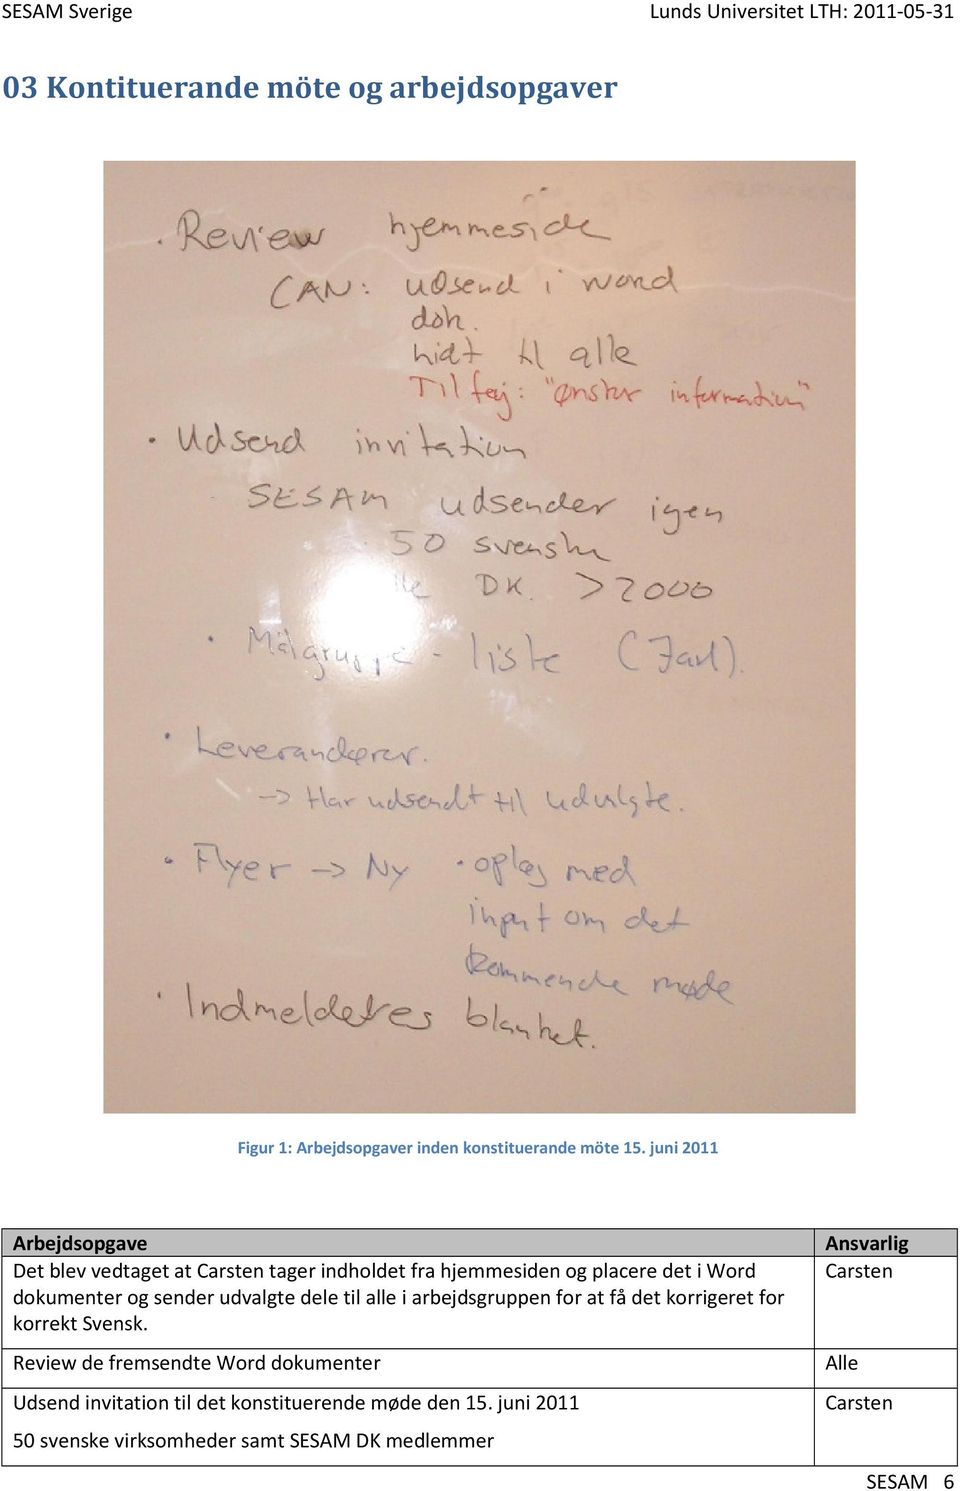 SESAM Sverige Lunds Universitet LTH: 2011-05-31
03 Kontituerande möte og arbejdsopgaver
· Review hjemmeside
CAN: udsend i word
dok.
hidt til alle
Tilføj: "ønsker information"
· Udsend invitation
SESAM udsender igen
50 svenske
DK. >2000
· Målgruppe - liste (Jarl).
· Leverandører.
-> Har udsendt til udvalgte.
· Flyer -> Ny · oplæg med
input om det
kommende møde
· Indmeldelses blanket.
Figur 1: Arbejdsopgaver inden konstituerande möte 15. juni 2011
Arbejdsopgave Ansvarlig
Det blev vedtaget at Carsten tager indholdet fra hjemmesiden og placere det i Word Carsten
dokumenter og sender udvalgte dele til alle i arbejdsgruppen for at få det korrigeret for
korrekt Svensk.
Review de fremsendte Word dokumenter Alle
Udsend invitation til det konstituerende møde den 15. juni 2011 Carsten
50 svenske virksomheder samt SESAM DK medlemmer
SESAM 6